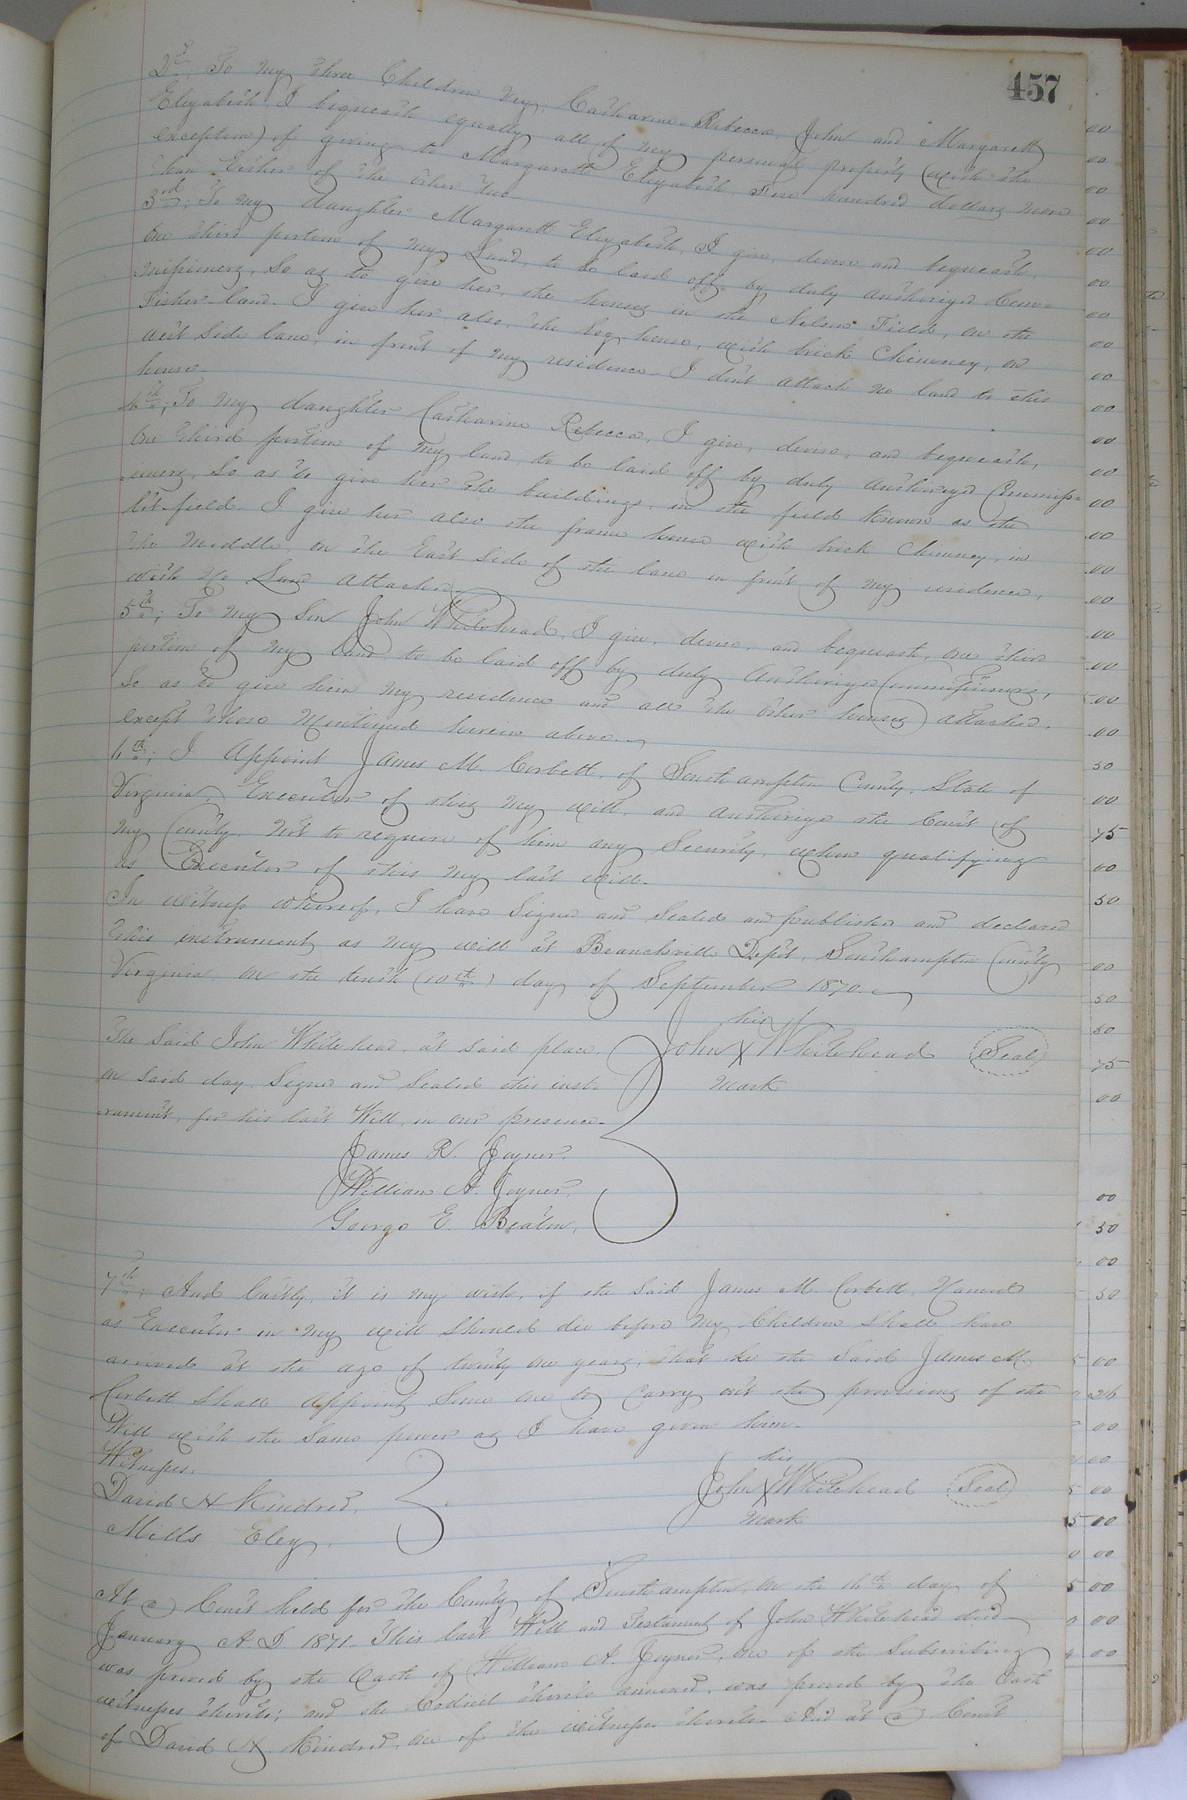 457
2d; To my three Children viz; Catharine Rebecca, John and Margarett
Elizabeth I bequeath equally all of my personal property (with the
exception) of giving to Margarett Elizabeth Five hundred dollars more
than Either of the other two
3rd; To my daughter Margarett Elizabeth, I give, devise and bequeath,
One third portion of my Land, to be laid off by duly authorized Com=
missioners, So as to give her, the houses in the Nelson Field, on the
Fisher land. I give her also, the log house, with brick Chimney, on
side lane, in front of my residence - I don't attach no land to this
house
4th; To my daughter Catharine Rebecca, I give, devise, and bequeath,
One third portion of my land to be laid off by duly authorized Commiss-
-ioners, So as to give her the buildings, in the field known as the
field. I give her also the frame house with brick Chimney, in
the Middle, on the East side of the lane in front of my residence,
with no Land attached.
5th; To my Son John Whitehead, I give, devise, and bequeath, one third
portion of my land to be laid off by duly Authorized Commissioners,
So as to give him my residence and all the other houses attached.
except those Mentioned herein above.
6th; I Appoint James M. Corbett, of Southampton County, State of
Virginia, Executor of this my will, and authorize the Court of
my County, not to require of him any Security, when qualifying
as Executor of this my last will.
In witness whereof, I have Signed and Sealed and published and declared
this instrument as my will at Branchville Depot, Southampton County
Virginia, on the tenth (10th) day of September 1870.
The Said John Whitehead, at said place,
on said day, Signed and Sealed this inst-
-rument, for his last Will, in our presence.
his
John X Whitehead (Seal)
mark
James R. Joyner.
William A. Joyner.
George E. Beaton.
7th; And lastly, it is my wish, if the said James M. Corbett, Named
as Executor in my will should die before my Children shall have
arrived at the age of twenty one years, that he the said James M.
Corbett shall appoint Some one to carry out the provisions of the
Will with the same power as I have given him.
Witnesses.
David H Kindred,
Mills Eley.
his
John X Whitehead (Seal)
mark
At a Court held for the County of Southampton, on the 16th day of
January A. D. 1871. This last Will and Testament of John Whitehead decd
was proved by the Oath of William A. Joyner, one of the Subscribing
witnesses thereto; and the Codicil thereto annexed, was proved by the Oath
of David H Kindred, one of the witnesses thereto. And at a Court